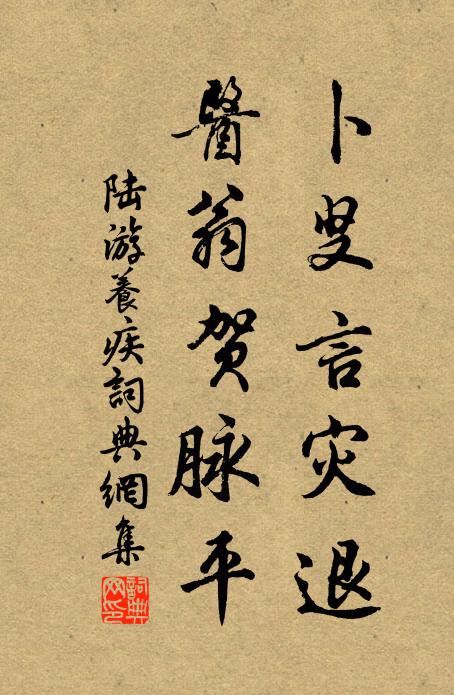 卜叟言灾退
醫翁贺脉平
陆游養疾詞典網集
詞典网印